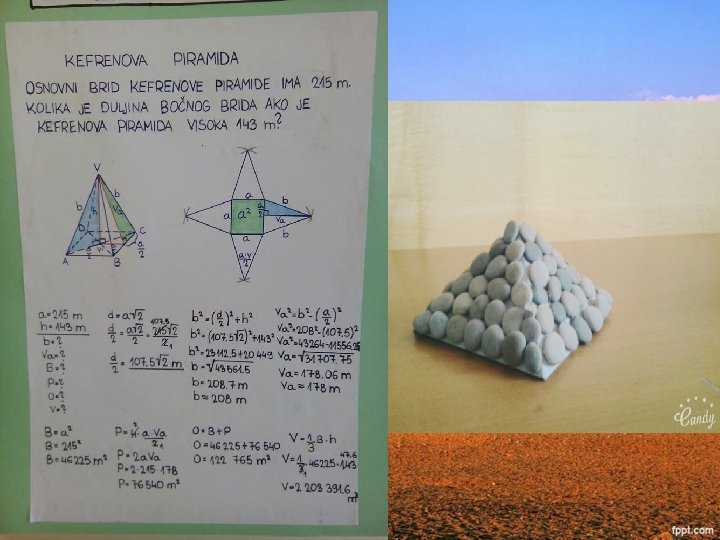 KEFRENOVA PIRAMIDA
OSNOVNI BRID KEFRENOVE PIRAMIDE IMA 215 m.
KOLIKA JE DULJINA BOČNOG BRIDA AKO JE
KEFRENOVA PIRAMIDA VISOKA 143 m?
V
b
h
Va
b
D
C
A
B
a/2
a
a
a²
a
a/2
b
Va
b
a·v/2
a=215 m
h=143 m
b=?
Va=?
B=?
P=?
O=?
V=?
d=a√2
d/2=a√2/2=215√2/2
107,5
1
d/2=107,5√2 m
b²=(d/2)²+h²
b²=(107,5√2)²+143²
b²=23112.5+20449
b=√43561.5
b=208.7 m
b≈208 m
Va²=b²-(a/2)²
Va²=208²-(107.5)²
Va²=43264-11556.25
Va=√31707.75
Va=178.06 m
Va≈178 m
B=a²
B=215²
B=46225 m²
P=4·a·Va/2
2
1
P=2aVa
P=2·215·178
P=76540 m²
O=B+P
O=46225+76540
O=122 765 m²
V=1/3·B·h
V=1/3·46225·143
47.6
1
V=2 203 391.6 m³
Candy
fppt.com